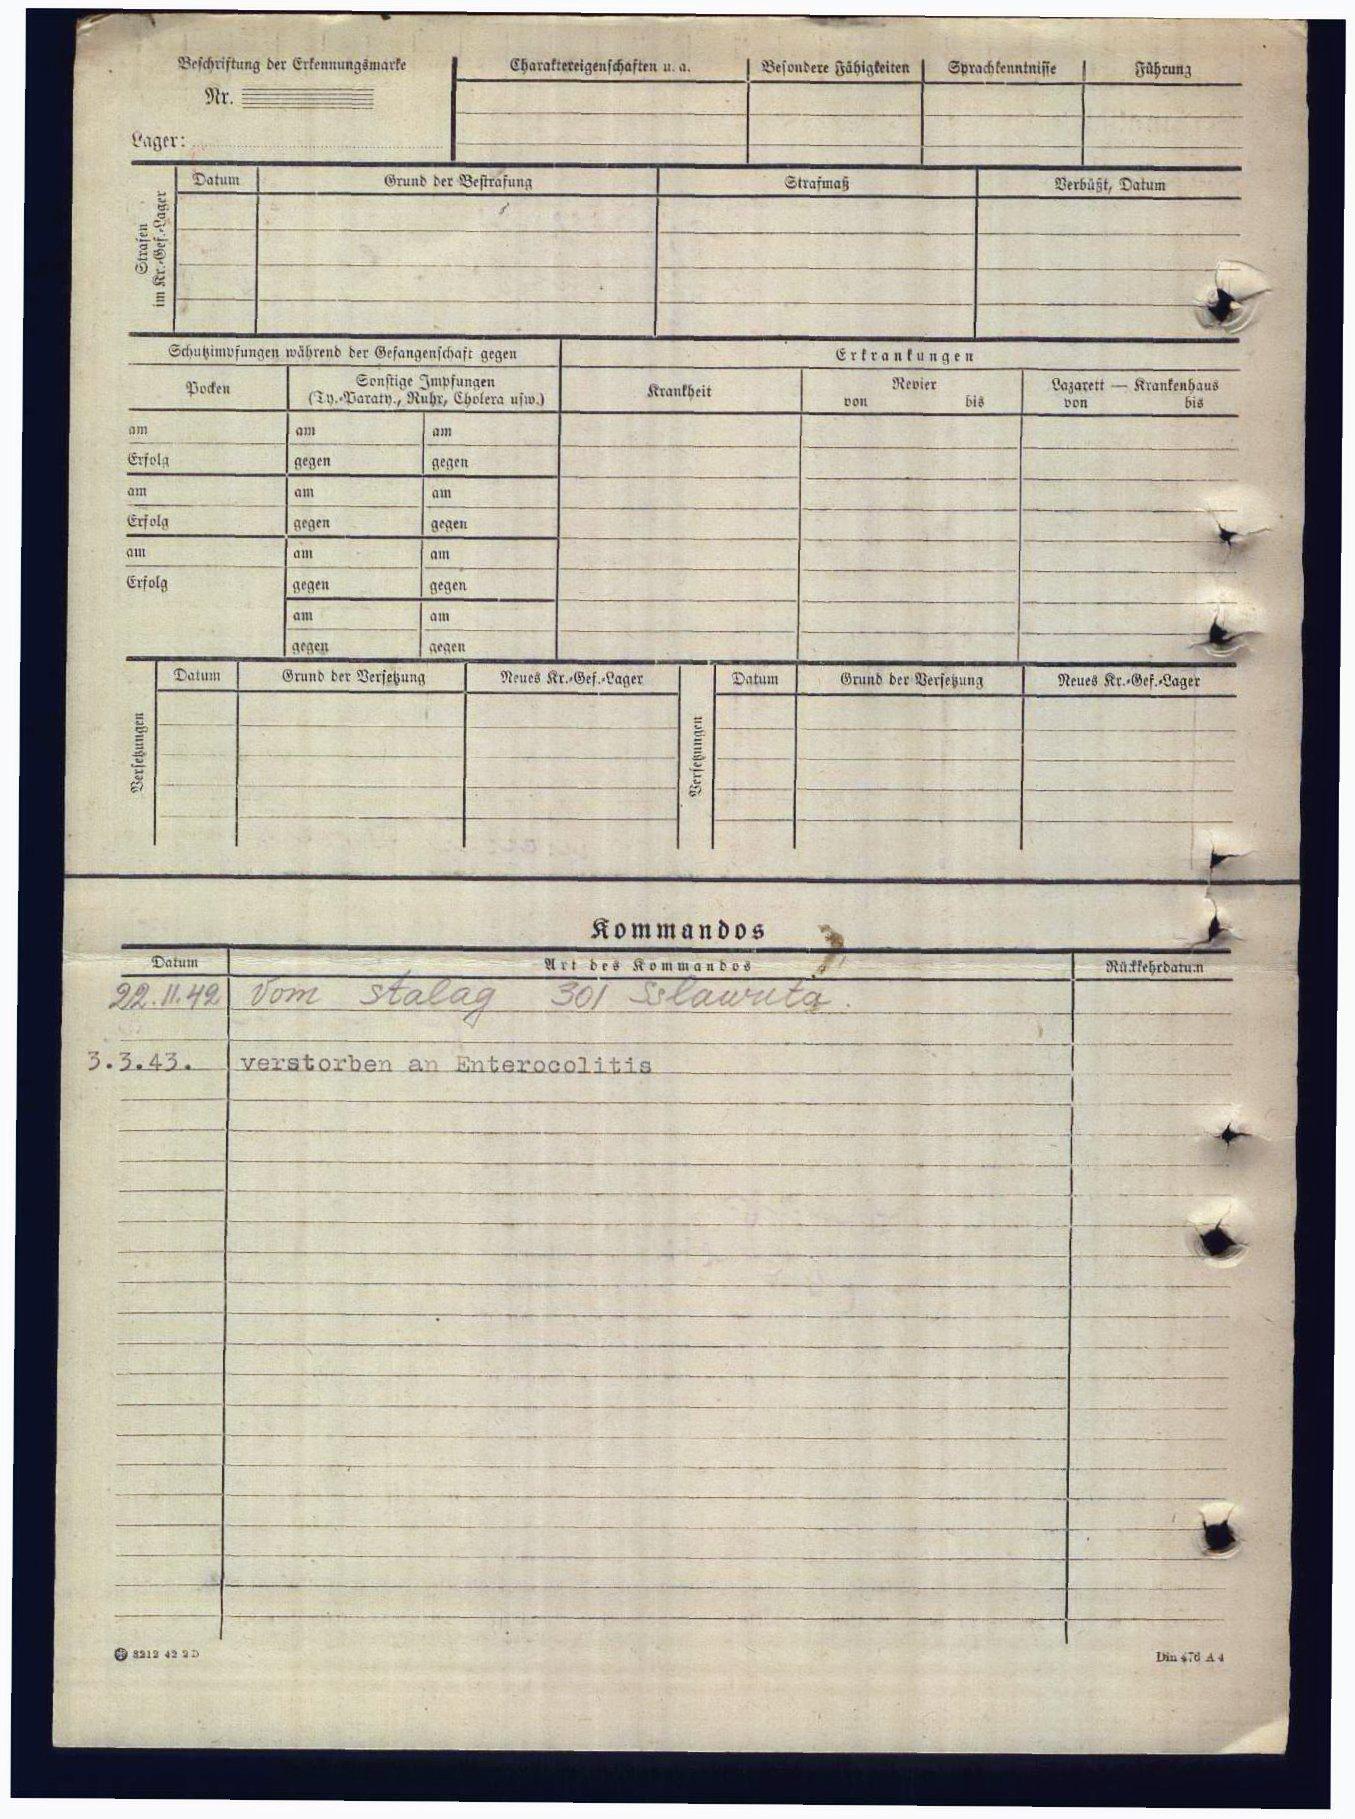 Beschriftung der Erkennungsmarke
Nr.
Lager:
Charaktereigenschaften u. a.
Besondere Fähigkeiten
Sprachkenntnisse
Führung
Strafen
im Kr.-Gef.-Lager
Datum
Grund der Bestrafung
Strafmaß
Verbüßt, Datum
Schutzimpfungen während der Gefangenschaft gegen
Erkrankungen
Pocken
Sonstige Impfungen
(Ty.-Paraty., Ruhr, Cholera usw.)
Krankheit
Revier
von bis
Lazarett — Krankenhaus
von bis
am am am
Erfolg gegen gegen
am am am
Erfolg gegen gegen
am am am
Erfolg gegen gegen
am am
gegen gegen
Versetzungen
Datum
Grund der Versetzung
Neues Kr.-Gef.-Lager
Versetzungen
Datum
Grund der Versetzung
Neues Kr.-Gef.-Lager
Kommandos
Datum
Art des Kommandos
Rückkehrdatum
22.11.42 Vom Stalag 301 Sslawuta.
3.3.43. verstorben an Enterocolitis
8212 42 2 D
Din 476 A 4